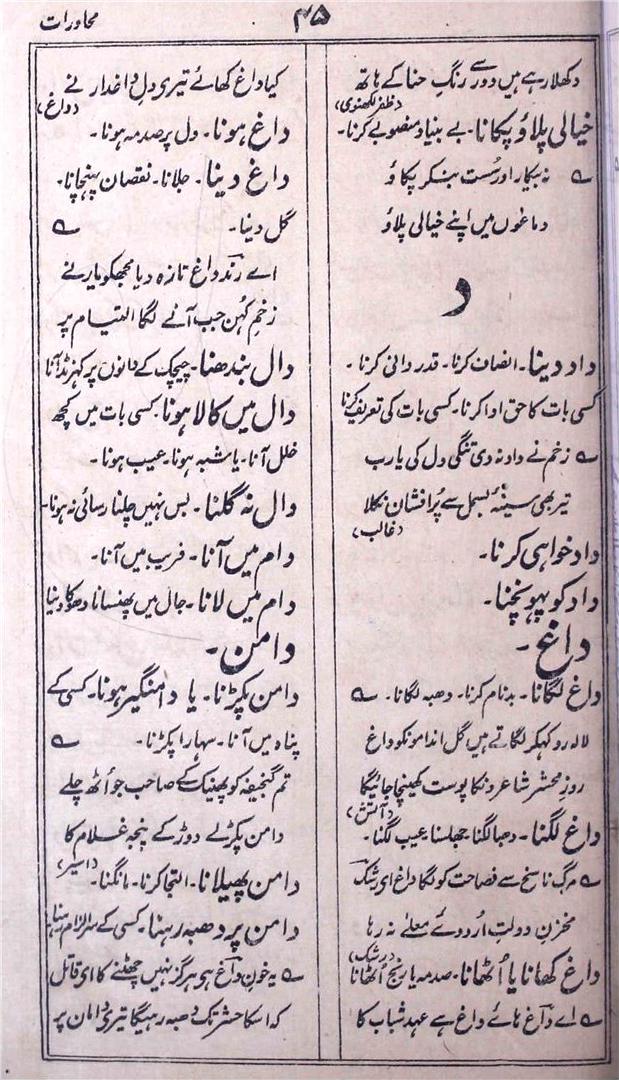 محاورات
۴۵
دکھلا رہے ہیں دور سے رنگِ حنا کے ہاتھ
(ظفر لکھنوی)
خیالی پلاؤ پکانا۔ بے بنیاد منصوبے کرنا۔
؎ نہ بیکار اور سُست بنکر پکاؤ
دماغوں میں اپنے خیالی پلاؤ
د
داد دینا۔ انصاف کرنا۔ قدر دانی کرنا۔
کسی بات کا حق ادا کرنا۔ کسی بات کی تعریف کرنا
؎ زخم نے داد نہ دی تنگیِ دل کی یارب
تیر بھی سینۂ بسمل سے پُرافشان نکلا
(غالب)
داد خواہی کرنا۔
داد کو پہونچنا۔
داغ۔
داغ لگانا۔ بدنام کرنا۔ دھبہ لگانا۔ ؎
لالہ رو کہکر لگاتے ہیں گل اندامونکو داغ
روزِ محشر شاعرونکا پوست کھینچا جائیگا
(آتش)
داغ لگنا۔ دھبا لگنا۔ جھلسنا۔ عیب لگنا۔
؎ مرگِ ناسخ سے فصاحت کو لگا داغ ای رشک
مخزنِ دولتِ اُردوے معلے نہ رہا
(رشک)
داغ کھانا یا اُٹھانا۔ صدمہ یا رنج اُٹھانا
؎ اے داغ ہائے داغ ہے عہدِ شباب کا
کیا داغ کھائے تیری دلِ داغدار نے
(داغ)
داغ ہونا۔ دل پر صدمہ ہونا۔
داغ دینا۔ جلانا۔ نقصان پہنچانا۔
گل دینا۔ ؎
اے رند داغ تازہ دیا مجھکو یار نے
زخمِ کُہن جب آنے لگا التیام پر
دال بندھنا۔ چیچک کے دانوں پر کھرنڈ آنا
دال میں کالا ہونا۔ کسی بات میں کچھ
خلل آنا۔ یا شبہ ہونا۔ عیب ہونا۔
دال نہ گلنا۔ بس نہیں چلنا رسائی نہ ہونا۔
دام میں آنا۔ فریب میں آنا۔
دام میں لانا۔ جال میں پھنسانا دھوکا دینا
دامن۔
دامن پکڑنا۔ یا دامنگیر ہونا۔ کسی کے
پناہ میں آنا۔ سہارا پکڑنا۔ ؎
تم گنجیفہ کو پھینک کے صاحب جو اُٹھ چلے
دامن پکڑ لے دوڑ کے پنجہ غلام کا
(اسیر)
دامن پھیلانا۔ التجا کرنا۔ مانگنا۔
دامن پر دھبہ رہنا۔ کسی کے سر الزام رہنا
؎ یہ خونِ داغ ہی ہرگز نہیں چھٹنے کا ای قاتل
کہ اسکا حشر تک دھبہ رہیگا تیری دامان پر